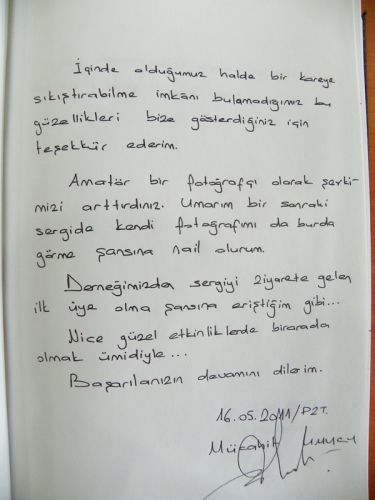 İçinde olduğumuz halde bir kareye
sıkıştırabilme imkânı bulamadığımız bu
güzellikleri bize gösterdiğiniz için
teşekkür ederim.
Amatör bir fotoğrafçı olarak şevki-
mizi arttırdınız. Umarım bir sonraki
sergide kendi fotoğrafımı da burda
görme şansına nail olurum.
Derneğimizden sergiyi ziyarete gelen
ilk üye olma şansına eriştiğim gibi...
Nice güzel etkinliklerde birarada
olmak ümidiyle...
Başarılarızın devamını dilerim.
16.05.2011/PZT.
Mücahit